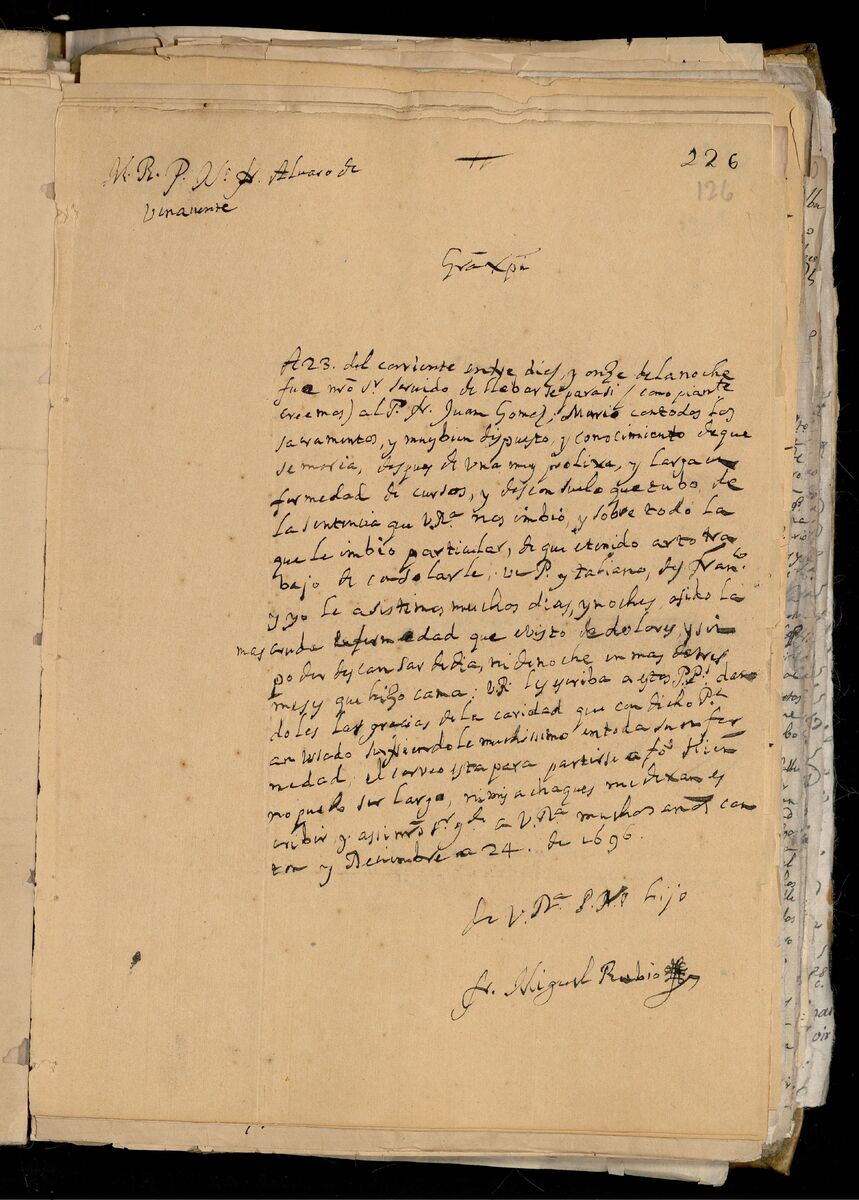 M. R. P. N.º fr. Alvaro de
Venavente
226
126
Grã Xpi
A 23. del corriente entre dies, y onze de la noche
fue nrõ sr. servido de llebarse para si / como piante
creemos) al P. fr. Juan Gomez, Murió con todos los
sacramentos, y muy bien dispuesto, y conocimiento de que
se moria, despues de una muy prolixa, y larga en
fermedad de cursos, y desconsuelo que tubo, de
la sentencia que V. Rª. nos imbió, y sobre todo la
que le imbio particular, de que e tenido arto tra
bajo de consolarle, P. y fabiano, fran.co
y yo le asistimos muchos dias, y noches, asido la
mas cruda enfermedad que e visto de dolores, y sin
poder descansar de dia, ni de noche en mas de tres
meses que hizo cama; V.R. les escriba a estos P.Ps. dan
doles las gracias de la caridad que con dicho Pe.
an usado sufriendole muchissimo en toda su enfer
medad, el correo esta para partirse a
no puedo ser largo, ni mis achaques me dexan es
cribir y assi nrõ sr. gde. a V. Rª. muchos anõs can
ton y Deciembre a 24. de 1696.
de V. Rª. P. N. hijo
fr. Miguel Rubio